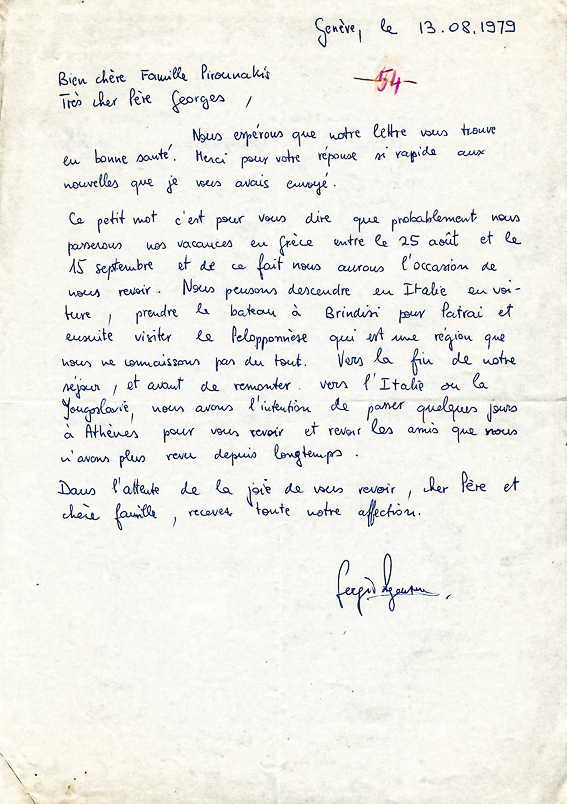 Genève, le 13.08.1979
Bien chère Famille Pirounakis
54
Très cher Père Georges,
Nous espérons que notre lettre vous trouve
en bonne santé. Merci pour votre réponse si rapide aux
nouvelles que je vous avais envoyé.
Ce petit mot c'est pour vous dire que probablement nous
passerons nos vacances en Grèce entre le 25 août et le
15 septembre et de ce fait nous aurons l'occasion de
nous revoir. Nous pensons descendre en Italie en voi-
ture, prendre le bateau à Brindisi pour Patrai et
ensuite visiter le Pelopponnèse qui est une région que
nous ne connaissons pas du tout. Vers la fin de notre
séjour, et avant de remonter vers l'Italie ou la
Yougoslavie, nous avons l'intention de passer quelques jours
à Athènes pour vous revoir et revoir les amis que nous
n'avons plus revu depuis longtemps.
Dans l'attente de la joie de vous revoir, cher Père et
chère famille, recevez toute notre affection.